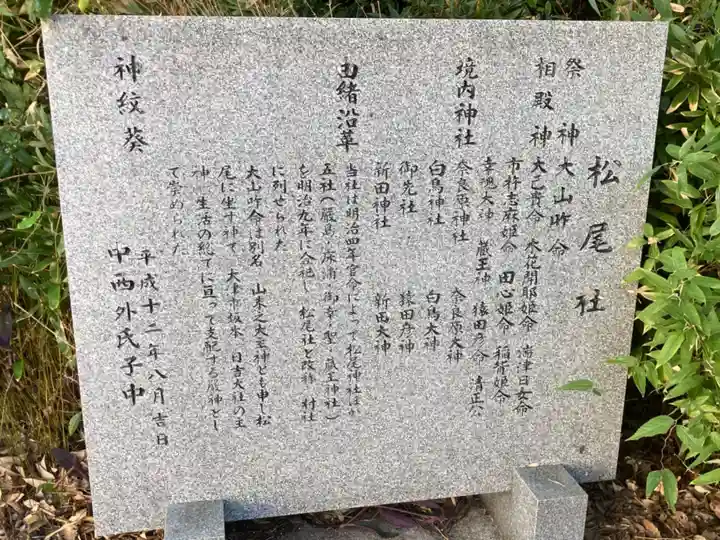 松尾社
祭神 大山咋命
相殿神 大己貴命 木花開耶姫命 湍津日女命
市杵志麻姫命 田心姫命 稲背姫命
幸魂大神 蔵王神 猿田彦命 清正公
境内神社 奈良原神社 奈良原大神
白鳥神社 白鳥大神
御先社 猿田彦神
新田神社 新田大神
由緒沿革 当社は明治四年官命によって松尾神社ほか
五社(厳島・床浦・御幸・聖・蔵王神社)
を明治九年に合祀し 松尾社と改称 村社
に列せられた
大山咋命は別名 山末之大主神とも申し松
尾に坐す神で、大津市坂本 日吉大社の主
神 生活の総てに亘って支配する成神とし
て崇められた
神紋 葵
平成十二年八月吉日
中西外氏子中